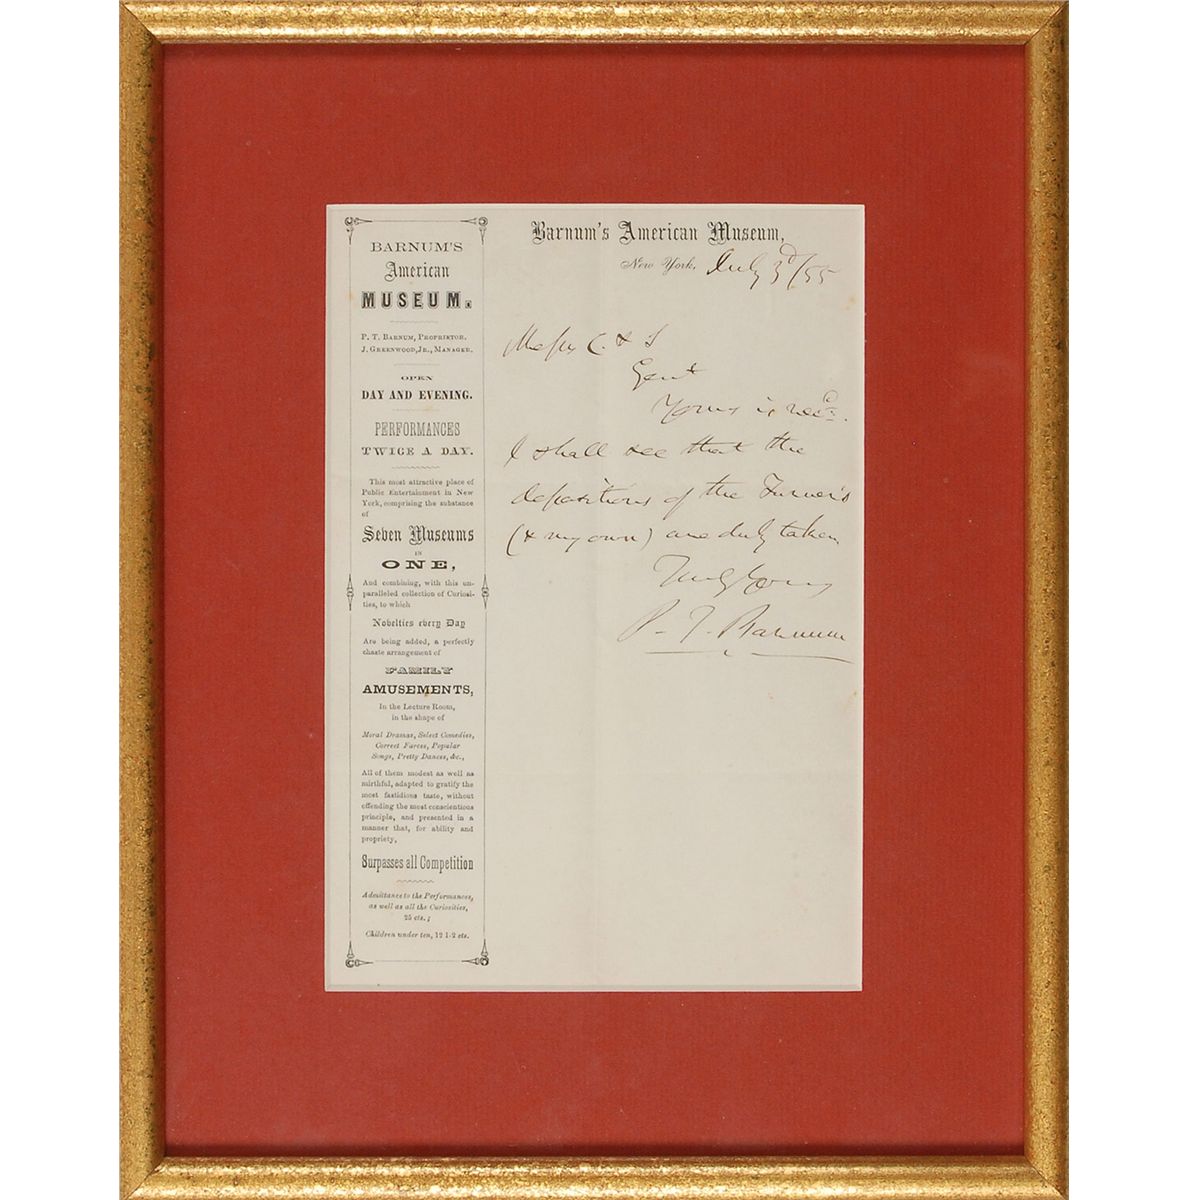 BARNUM'S
American
MUSEUM.
P. T. BARNUM, PROPRIETOR.
J. GREENWOOD, JR., MANAGER.
OPEN
DAY AND EVENING.
PERFORMANCES
TWICE A DAY.
This most attractive place of
Public Entertainment in New
York, comprising the substance
of
Seven Museums
IN
ONE,
And combining, with this un-
paralleled collection of Curiosi-
ties, to which
Novelties every Day
Are being added, a perfectly
chaste arrangement of
FAMILY
AMUSEMENTS,
In the Lecture Room,
in the shape of
Moral Dramas, Select Comedies,
Correct Farces, Popular
Songs, Pretty Dances, &c.,
All of them modest as well as
mirthful, adapted to gratify the
most fastidious taste, without
offending the most conscientious
principle, and presented in a
manner that, for ability and
propriety,
Surpasses all Competition
Admittance to the Performances,
as well as all the Curiosities,
25 cts.;
Children under ten, 12 1-2 cts.
Barnum's American Museum,
New York, July 3d/55
Messrs C. & S
Gent
Yours is recd.
I shall see that the
depositions of the Turner's
(& my own) are duly taken
Truly Yours
P. T. Barnum